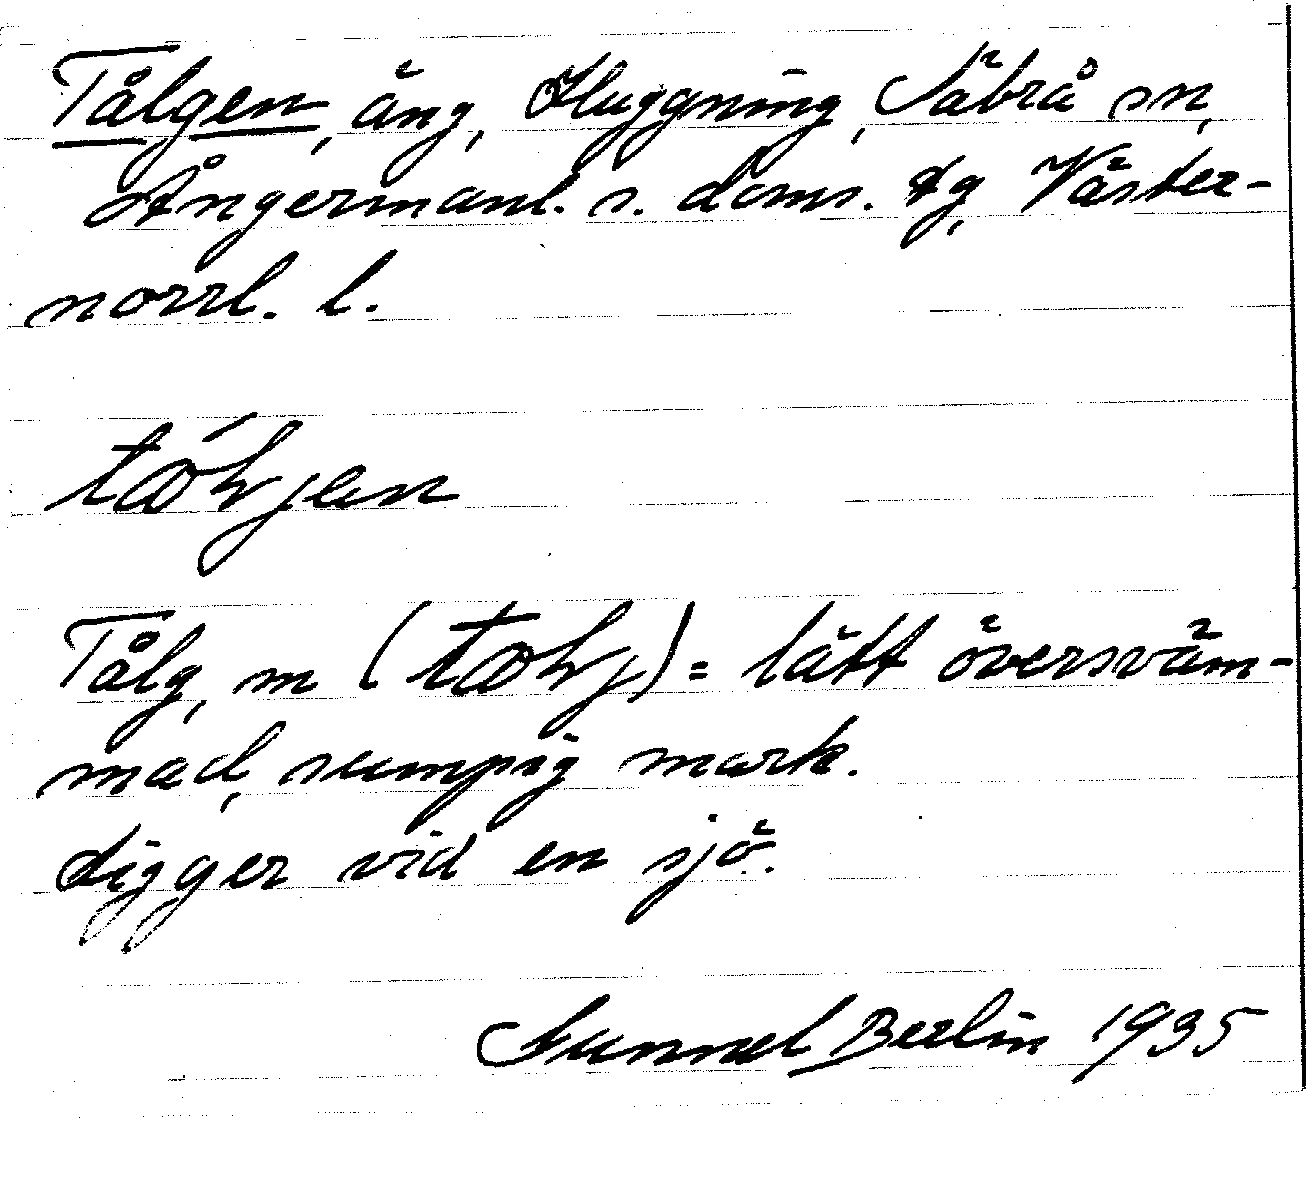 Tålgen, äng, Huggning, Säbrå sn,
Ångermanl. s. doms. dg, Väster-
norrl. l.
Tålg, m ( ) = lätt översväm-
mad, sumpig mark.
Ligger vid en sjö.
Gunnel Berlin 1935